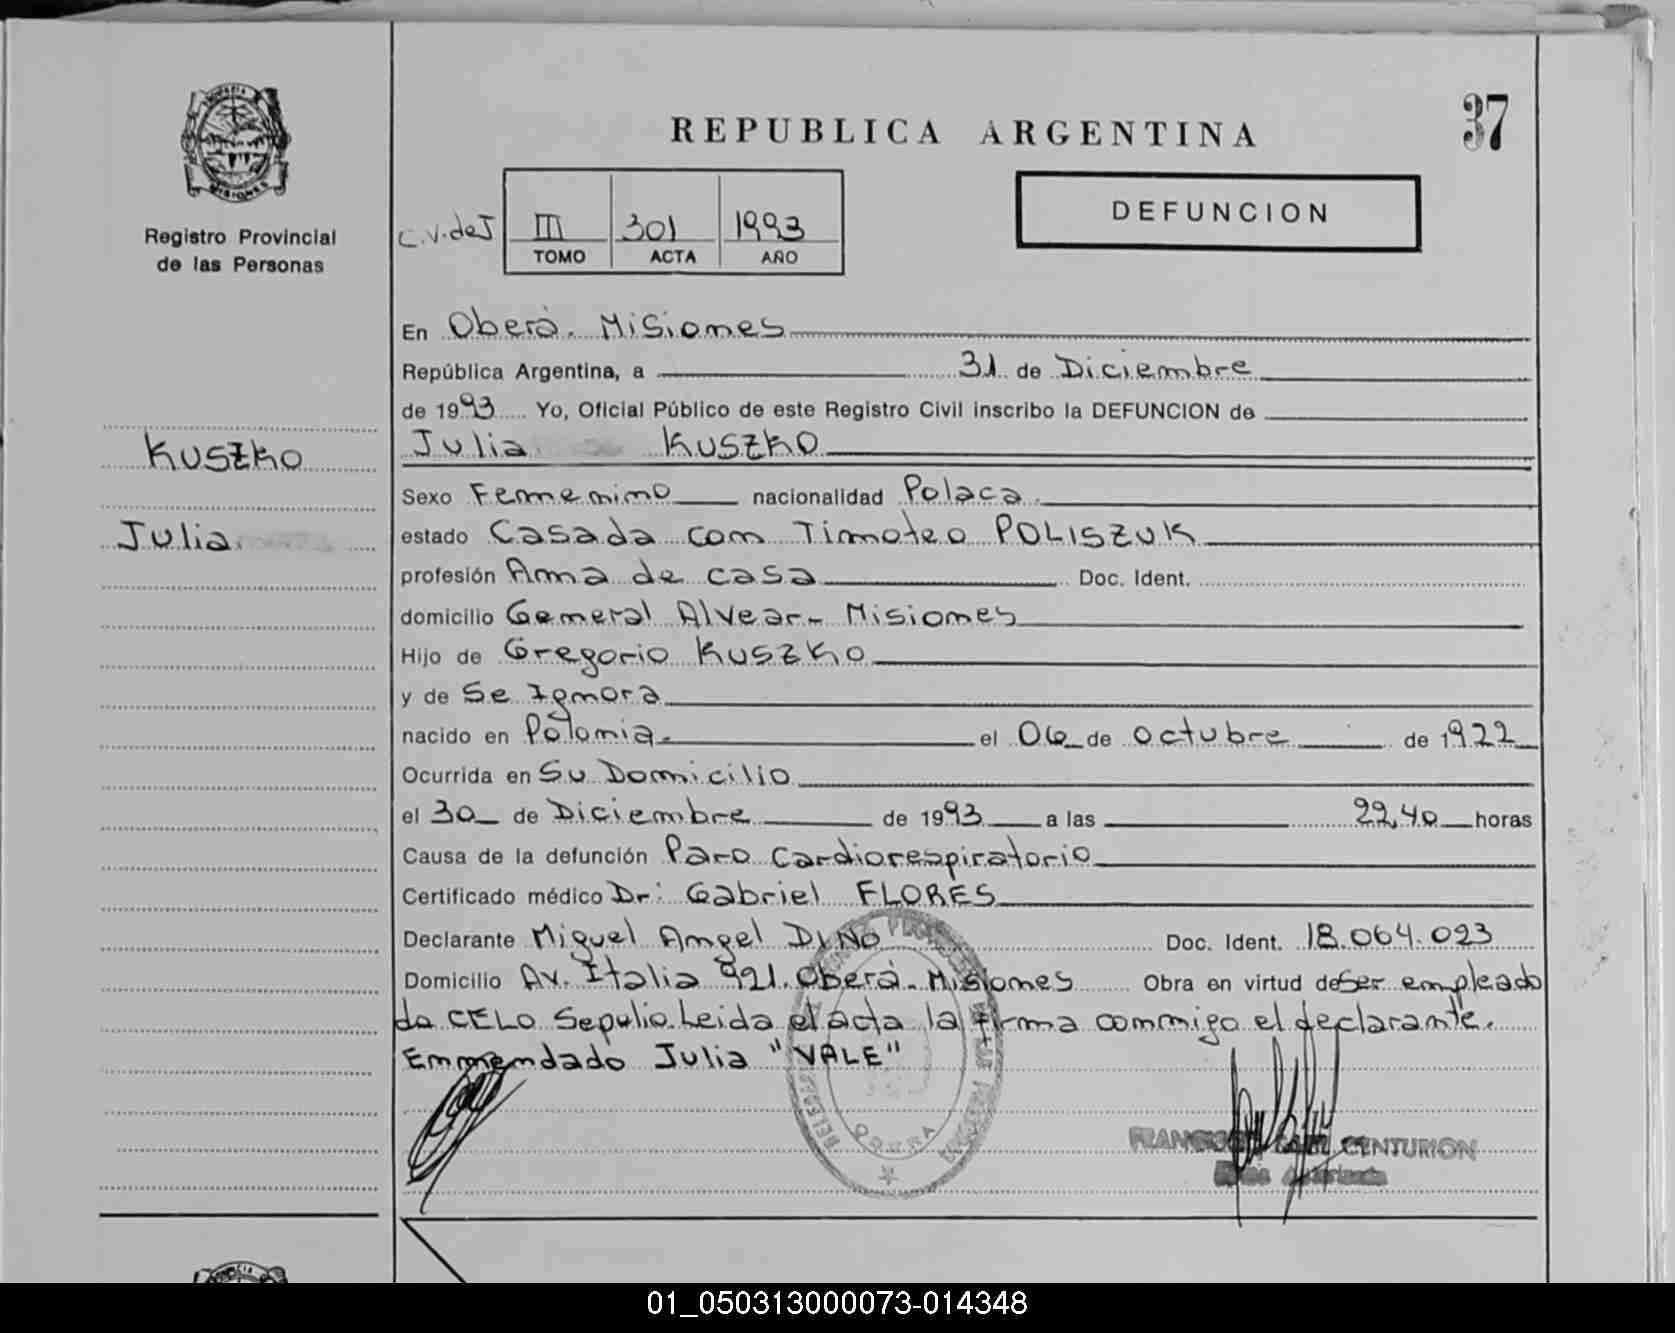 REPUBLICA ARGENTINA
37
MISIONES
Registro Provincial
de las Personas
C.V. de J
III 301 1993
TOMO ACTA AÑO
DEFUNCION
KUSZKO
Julia
En Oberá. Misiones
República Argentina, a 31 de Diciembre
de 1993 Yo, Oficial Público de este Registro Civil inscribo la DEFUNCION de
Julia KUSZKO
Sexo Femenino nacionalidad Polaca.
estado Casada con Timoteo POLISZUK
profesión Ama de casa Doc. Ident.
domicilio General Alvear- Misiones
Hijo de Gregorio KUSZKO
y de Se Ignora
nacido en Polonia. el 06 de octubre de 1922
Ocurrida en Su Domicilio
el 30 de Diciembre de 1993 a las 22,40 horas
Causa de la defunción Paro Cardiorespiratorio
Certificado médico Dr: Gabriel FLORES
Declarante Miguel Angel DINO Doc. Ident. 18.064.023
Domicilio Av. Italia 921. Oberá. Misiones Obra en virtud de Ser empleado
de CELO Sepelio. Leida el acta la firma conmigo el declarante.
Enmendado Julia "VALE"
OBERA
CENTURION
01_050313000073-014348